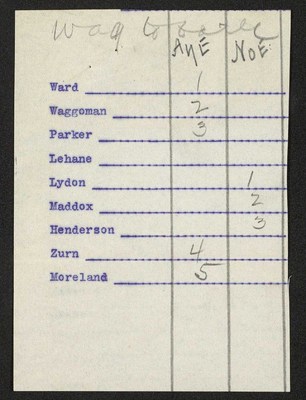 Wag
Aye Noe
Ward 1
Waggoman 2
Parker 3
Lehane
Lydon 1
Maddox 2
Henderson 3
Zurn 4
Moreland 5